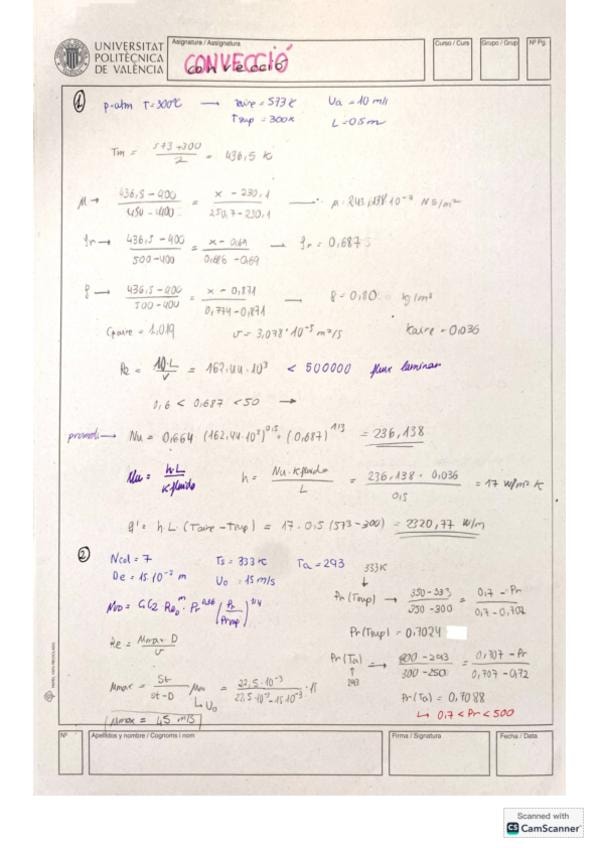 UNIVERSITAT
POLITÈCNICA
DE VALÈNCIA
Asignatura / Assignatura
CONVECCIÓ
convecció
Curso / Curs
Grupo / Grup
Nº Pg.
① p·atm T=300ºC → Taire = 573 K Ua = 10 m/s
Tsup = 300K L = 0.5m
Tm = (573+300)/2 = 436,5 K
μ → (436,5 - 400)/(450 - 400) = (x - 230,1)/(250,7 - 230,1) → μ = 243,138·10⁻⁷ NS/m²
Pr → (436,5 - 400)/(500 - 400) = (x - 0,69)/(0,686 - 0,69) → Pr = 0,687
ρ → (436,5 - 400)/(500 - 400) = (x - 0,871)/(0,774 - 0,871) → ρ = 0,80 kg/m³
Cpaire = 1,019 ν = 3,078·10⁻⁵ m²/s Kaire = 0,036
Re = 10·L/ν = 162,44·10³ < 500000 flux laminar
0,6 < 0,687 < 50 →
promedi → Nu = 0,664 (162,44·10³)^0,5 · (0,687)^1/3 = 236,138
Nu = h·L/Kfluido h = Nu·Kfluido/L = 236,138 · 0,036/0,5 = 17 W/m² K
q' = h·L·(Taire - Tsup) = 17·0,5 (573 - 300) = 2320,77 W/m
② Ncol = 7 Ts = 333 K Ta = 293
De = 15·10⁻³ m Uo = 15 m/s
333K
↓
Pr (Tsup) → (350 - 333)/(350 - 300) = (0,7 - Pr)/(0,7 - 0,707)
NuD = C1C2 ReD^m · Pr^0,36 (Pr/Prsup)^1/4
Pr (Tsup) = 0,7024
Re = Mmax·D/ν
Pr (Ta) → (300 - 293)/(300 - 250) = (0,707 - Pr)/(0,707 - 0,72)
↑
293
Mmax = St/(St - D) Mo = 22,5·10⁻³/(22,5·10⁻³ - 15·10⁻³) · 15
↳ Uo
Pr (Ta) = 0,7088
↳ 0,7 < Pr < 500
Mmax = 45 m/s
Nº
Apellidos y nombre / Cognoms i nom
Firma / Signatura
Fecha / Data
Scanned with
CS CamScanner